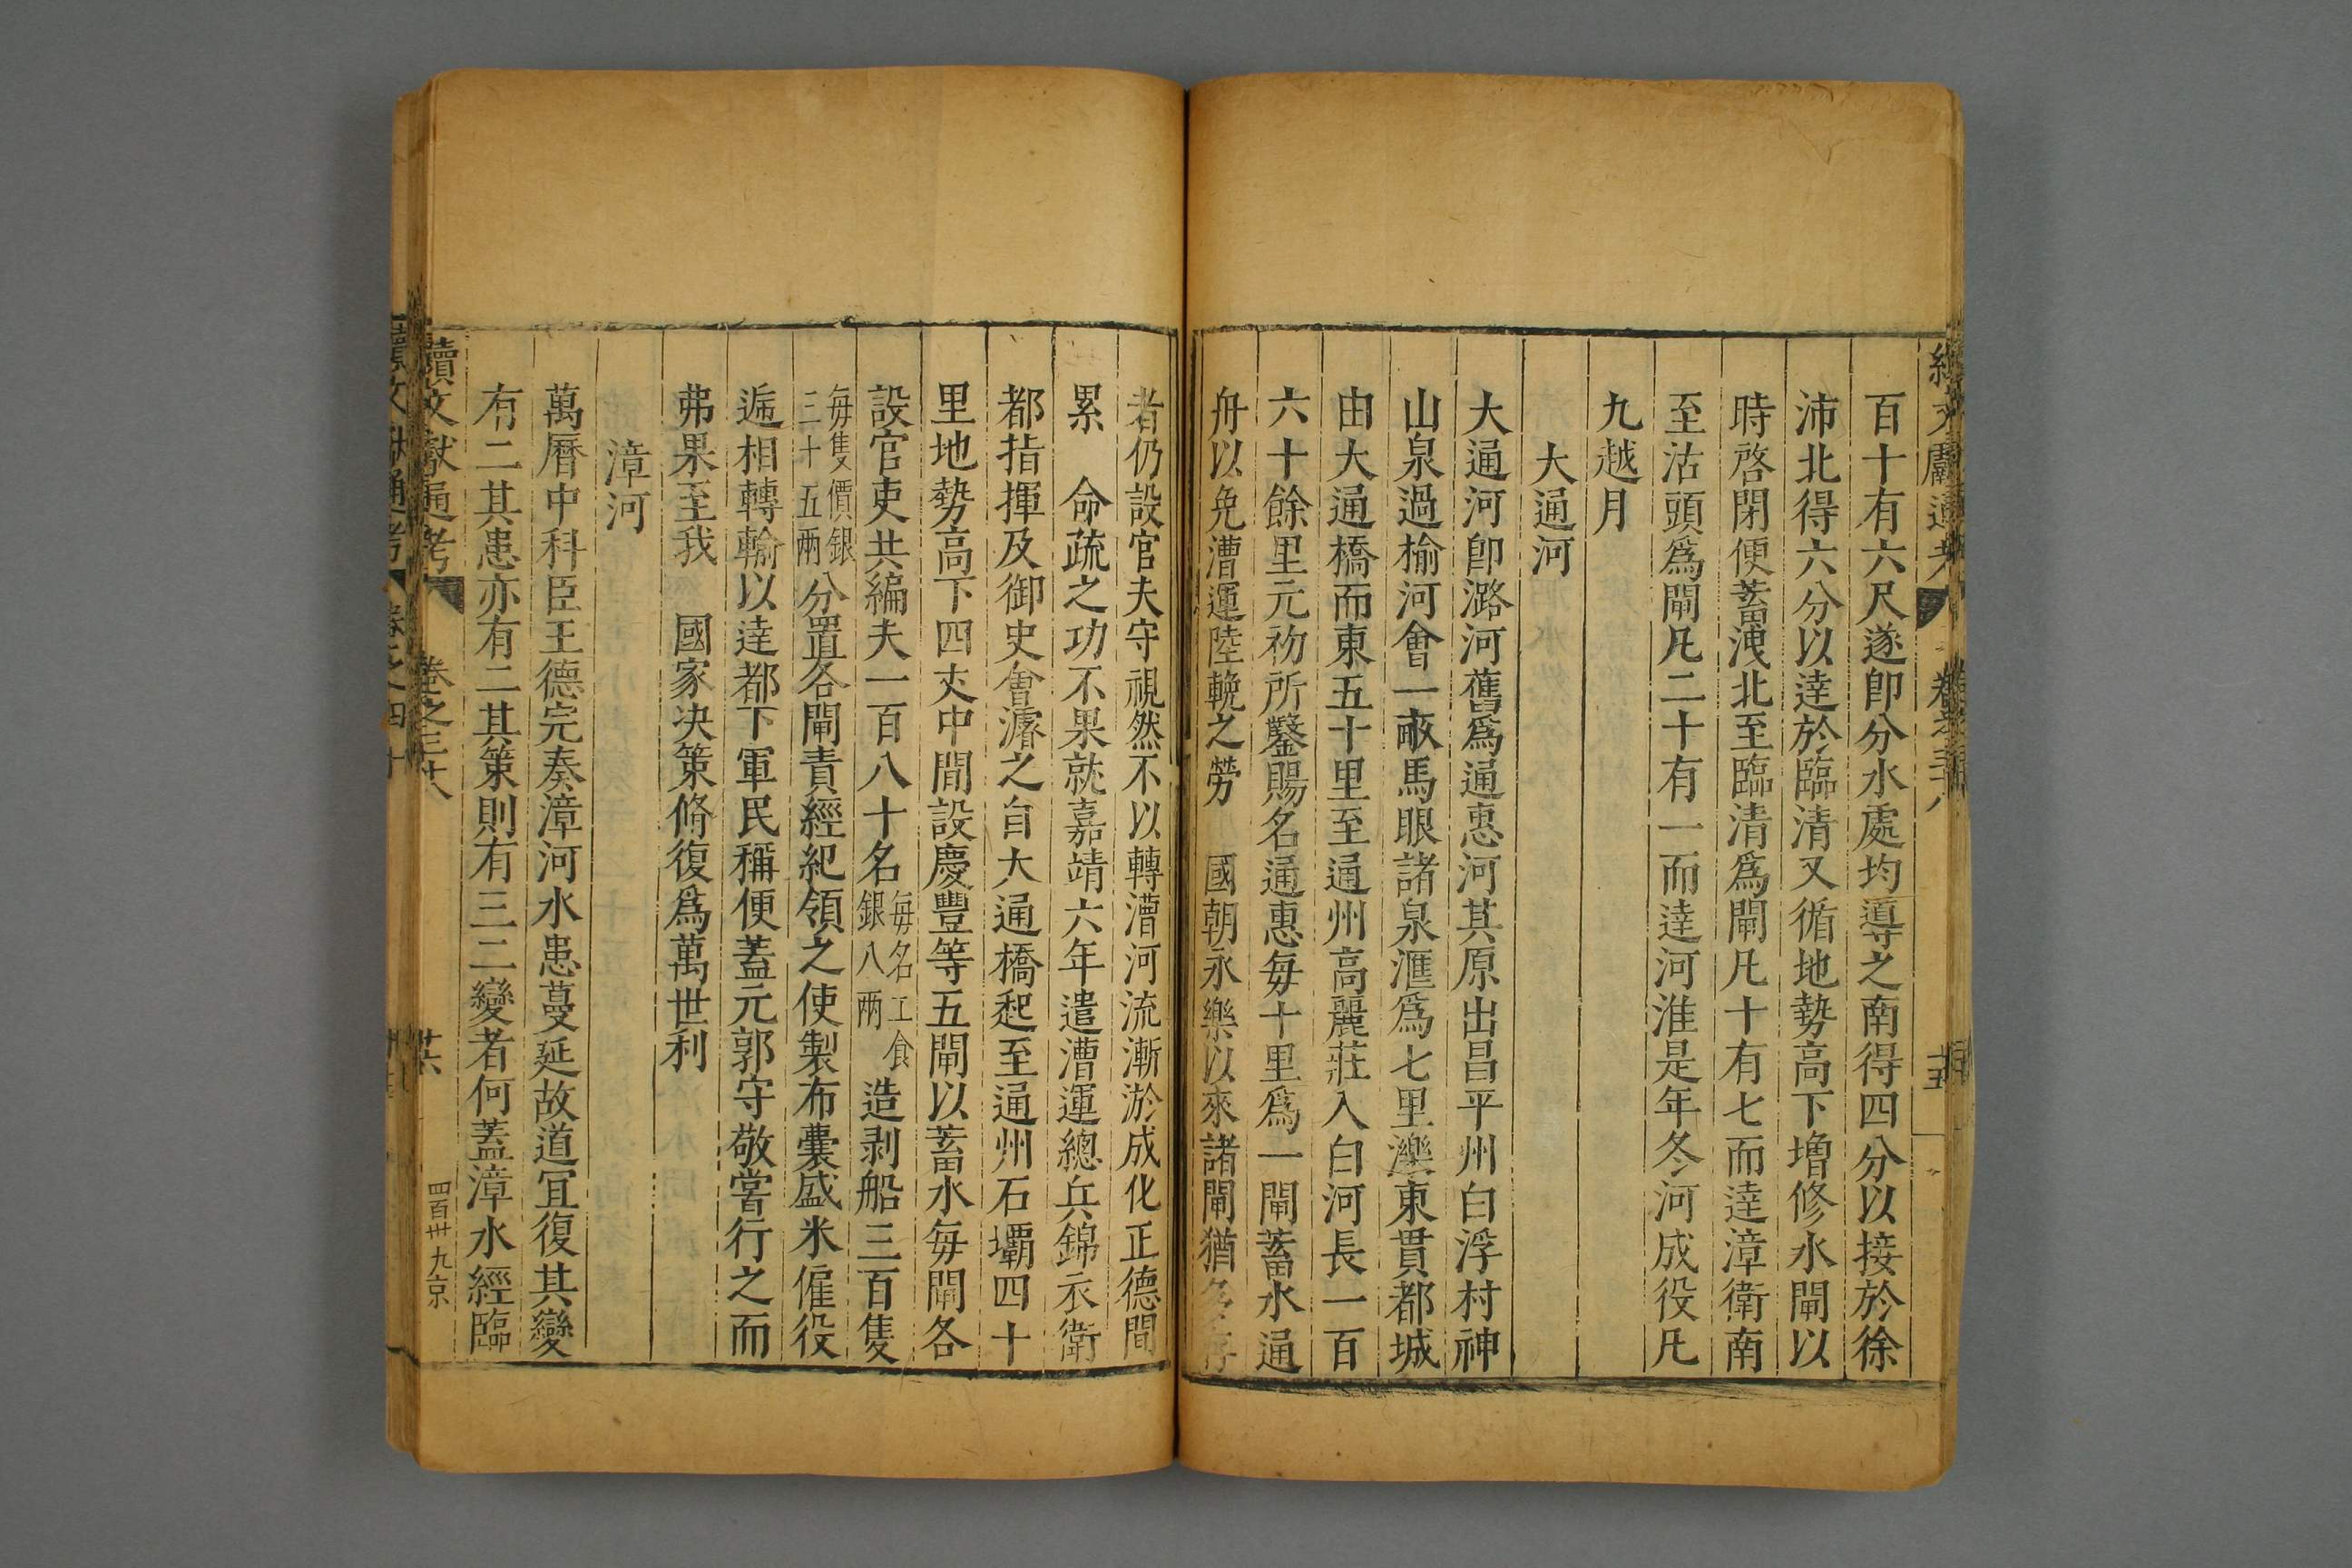 百十有六尺遂卽分水處均導之南得四分以接於徐
沛北得六分以達於臨清又循地勢高下增修水閘以
時啓閉便蓄洩北至臨清爲閘凡十有七而達漳衛南
至沽頭爲閘凡二十有一而達河淮是年冬河成役凡
九越月
大通河
大通河卽潞河舊爲通惠河其原出昌平州白浮村神
山泉過榆河會一畝馬眼諸泉滙爲七里濼東貫都城
由大通橋而東五十里至通州高麗莊入白河長一百
六十餘里元初所鑿賜名通惠每十里爲一閘蓄水通
舟以免漕運陸輓之勞 國朝永樂以來諸閘猶多存
者仍設官夫守視然不以轉漕河流漸淤成化正德間
累 命疏之功不果就嘉靖六年遣漕運總兵錦衣衛
都指揮及御史會濬之自大通橋起至通州石壩四十
里地勢高下四丈中間設慶豐等五閘以蓄水每閘各
設官吏共編夫一百八十名每名工食銀八兩造剥船三百隻
每隻價銀三十五兩分置各閘責經紀領之使製布囊盛米僱役
遞相轉輸以達都下軍民稱便蓋元郭守敬嘗行之而
弗果至我 國家决策脩復爲萬世利
漳河
萬曆中科臣王德完奏漳河水患蔓延故道宜復其變
有二其患亦有二其策則有三二變者何蓋漳水經臨
續文獻通考 卷之三十八 共
四百卅九京